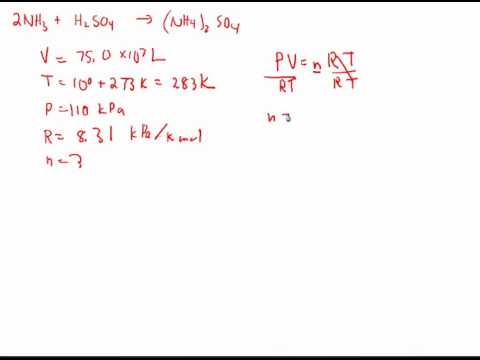 2NH₃ + H₂SO₄ → (NH₄)₂ SO₄
V = 75.0 × 10³ L
T = 10° + 273 K = 283K
P = 110 kPa
R = 8.31 kPa/K mol
n = ?
PV = n RT
RT RT
n =